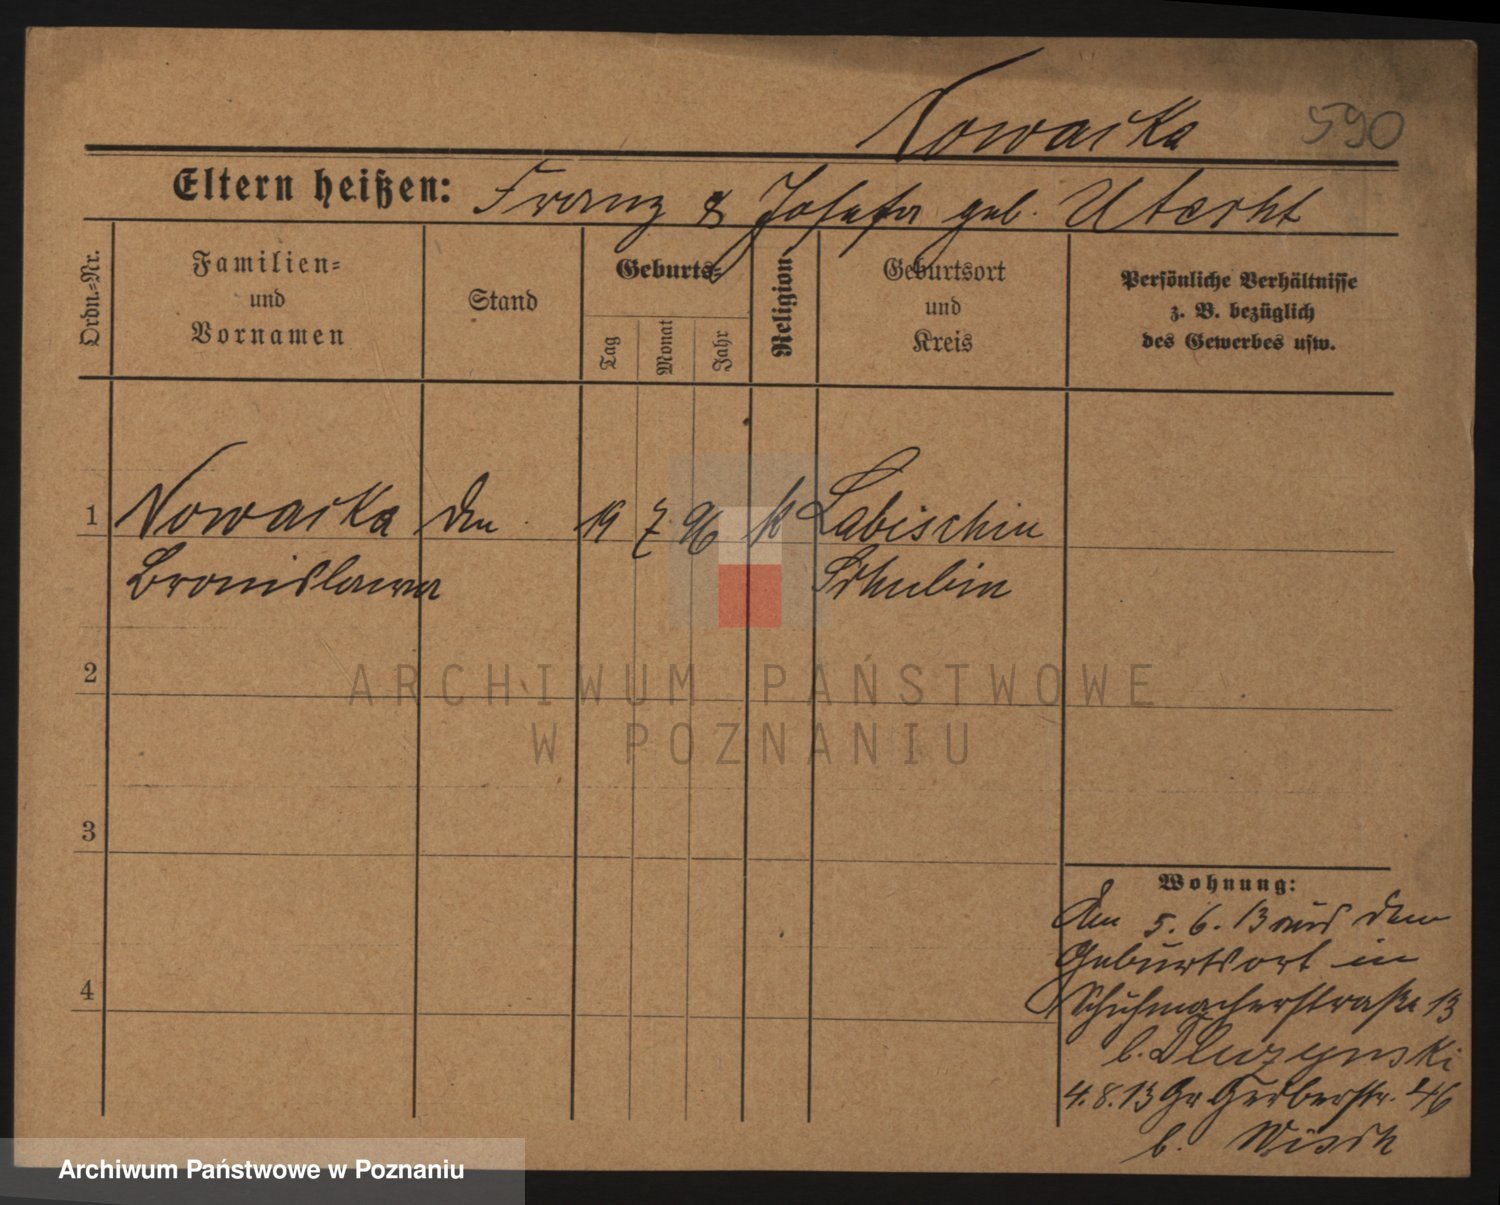 Nowacka 590
Eltern heißen: Franz & Josefa geb. Utecht
Ordn.=Nr.
Familien=
und
Vornamen
Stand
Geburts=
Tag
Monat
Jahr
Religion
Geburtsort
und
Kreis
Persönliche Verhältnisse
z. B. bezüglich
des Gewerbes usw.
1 Nowacka 19 7 96 k Labischin
Bronislawa Schubin
2
3
4
Wohnung:
Den 5. 6. 13 aus dem
Geburtsort in
Schuhmacherstraße 13
b. Dluzynski
4. 8. 13 Gr Gerberstr. 46
b.
ARCHIWUM PAŃSTWOWE
W POZNANIU
Archiwum Państwowe w Poznaniu